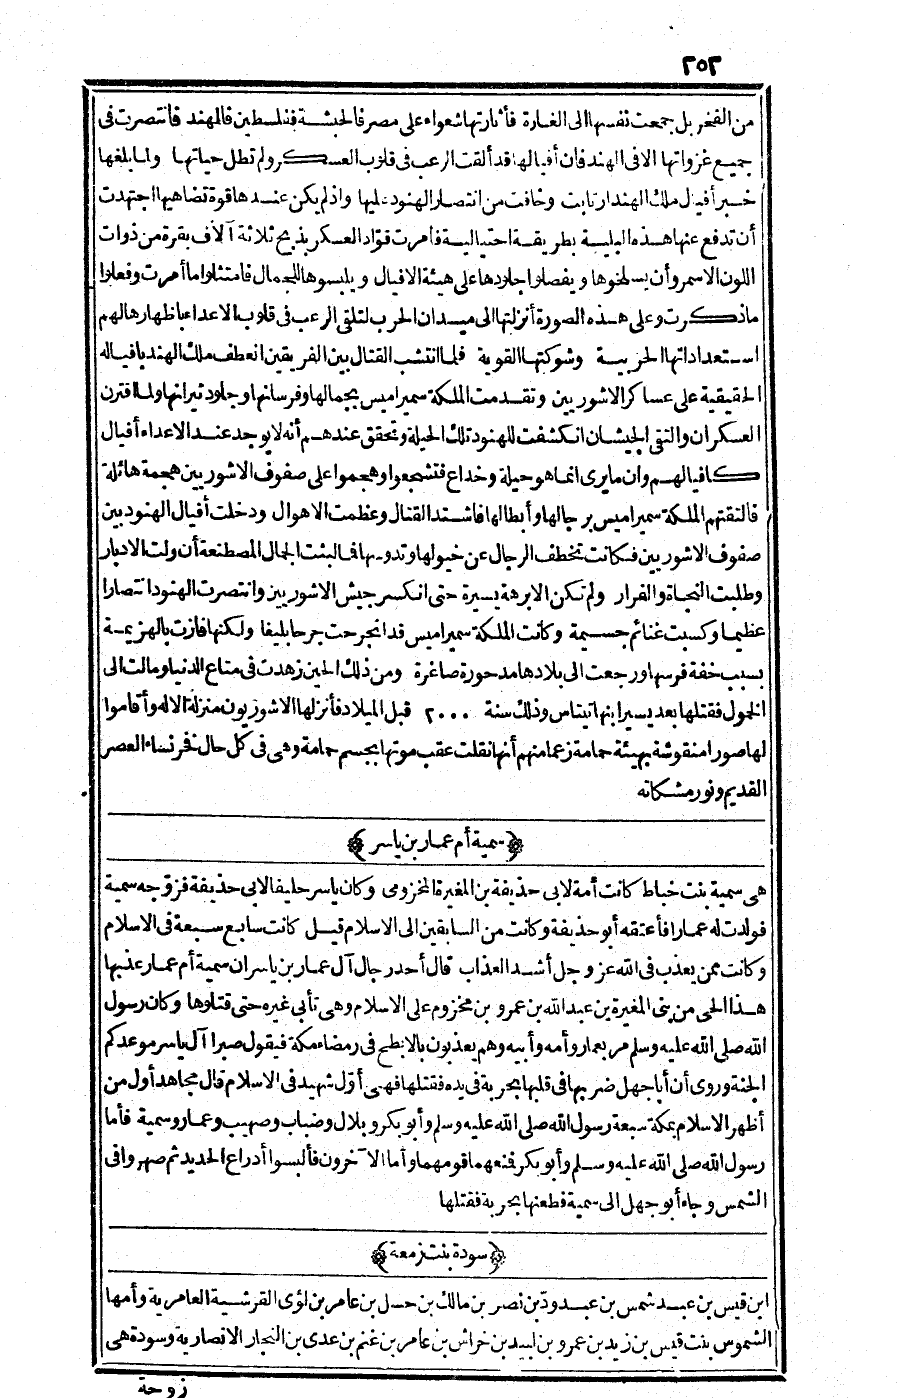 ٢٥٢
من الفخر بل جمعت نفسها الى الغارة فأثارتها شعواء على مصر فالحبشة ففلسطين فالهند فانتصرت فى
جميع غزواتها الا فى الهند فان أفيالها قد ألقت الرعب فى قلوب العسكر ولم تطل حياتها ولما بلغها
خبر أفيال ملك الهند ارتابت وخافت من انتصار الهنود عليها واذ لم يكن عندها قوة تضاهيها اجتهدت
أن تدفع عنها هذه البلية بطريقة احتيالية فأمرت قوّاد العسكر بذبح ثلاثة آلاف بقرة من ذوات
اللون الاسمر وأن يسلخوها ويفصلوا جلودها على هيئة الافيال ويلبسوها للجمال فامتثلوا ما أمرت وفعلوا
ماذكرت وعلى هذه الصورة أنزلتها الى ميدان الحرب لتلقى الرعب فى قلوب الاعداء باظهارها لهم
استعداداتها الحربية وشوكتها القوية فلما انتشب القتال بين الفريقين انعطف ملك الهند بافياله
الحقيقية على عساكر الاشوريين وتقدمت الملكة سميراميس بجمالها وفرسانها وجلود ثيرانها ولما اقترن
العسكران والتقى الجيشان انكشفت للهنود تلك الحيلة وتحقق عندهم أنه لا يوجد عند الاعداء أفيال
كافيالهم وان مايرى انما هو حيلة وخداع فتشجعوا وهجموا على صفوف الاشوريين هجمة هائلة
فالتقتهم الملكة سميراميس برجالها وأبطالها فاشتد القتال وعظمت الاهوال ودخلت أفيال الهنود بين
صفوف الاشوريين فكانت تخطف الرجال عن خيولها وتدوسها فمالبثت الجمال المصطنعة أن ولت الادبار
وطلبت النجاة والفرار ولم تكن الابرهة يسيرة حتى انكسر جيش الاشوريين وانتصرت الهنود انتصارا
عظيما وكسبت غنائم جسيمة وكانت الملكة سميراميس قد انجرحت جرحا بليغا ولكنها فازت بالهزيمة
بسبب خفة فرسها ورجعت الى بلادها مدحورة صاغرة ومن ذلك الحين زهدت فى متاع الدنيا ومالت الى
الخمول فقتلها بعد يسير ابنها نيتاس وذلك سنة ٢٠٠٠ قبل الميلاد فأنزلها الاشوريون منزلة الاله وأقاموا
لها صورا منقوشة بهيئة حمامة زعما منهم أنها نقلت عقب موتها بجسم حمامة وهى فى كل حال نخر نساء العصر
القديم ونور مشكاته
﴿سمية أم عمار بن ياسر﴾
هى سمية بنت خباط كانت أمة لابى حذيفة بن المغيرة المخزومى وكان ياسر حليفا لابى حذيفة فزوّجه سمية
فولدت له عمارا فأعتقه أبو حذيفة وكانت من السابقين الى الاسلام قيل كانت سابع سبعة فى الاسلام
وكانت ممن يعذب فى الله عز وجل أشد العذاب قال أحد رجال آل عمار بن ياسر ان سمية أم عمار عذبها
هذا الحى من بنى المغيرة بن عبد الله بن عمرو بن مخزوم على الاسلام وهى تأبى غيره حتى قتلوها وكان رسول
الله صلى الله عليه وسلم مر بعمار وأمه وأبيه وهم يعذبون بالابطح فى رمضاء مكة فيقول صبرا آل ياسر موعدكم
الجنة وروى أن أباجهل ضربها فى قلبها بحربة فى يده فقتلها فهى أوّل شهيد فى الاسلام قال مجاهد أول من
أظهر الاسلام بمكة سبعة رسول الله صلى الله عليه وسلم وأبو بكر وبلال وخباب وصهيب وعمار وسمية فأما
رسول الله صلى الله عليه وسلم وأبو بكر فنعهما قومهما وأما الآخرون فألبسوا أدراع الحديد ثم صهروا فى
الشمس وجاء أبو جهل الى سمية فطعنها بحربة فقتلها
﴿سودة بنت زمعة﴾
ابن قيس بن عبد شمس بن عبد ودّ بن نصر بن مالك بن حسل بن عامر بن لؤى القرشية العامرية وأمها
الشموس بنت قيس بن زيد بن عمرو بن لبيد بن خراش بن عامر بن غنم بن عدى بن النجار الانصارية وسودة هى
زوجة